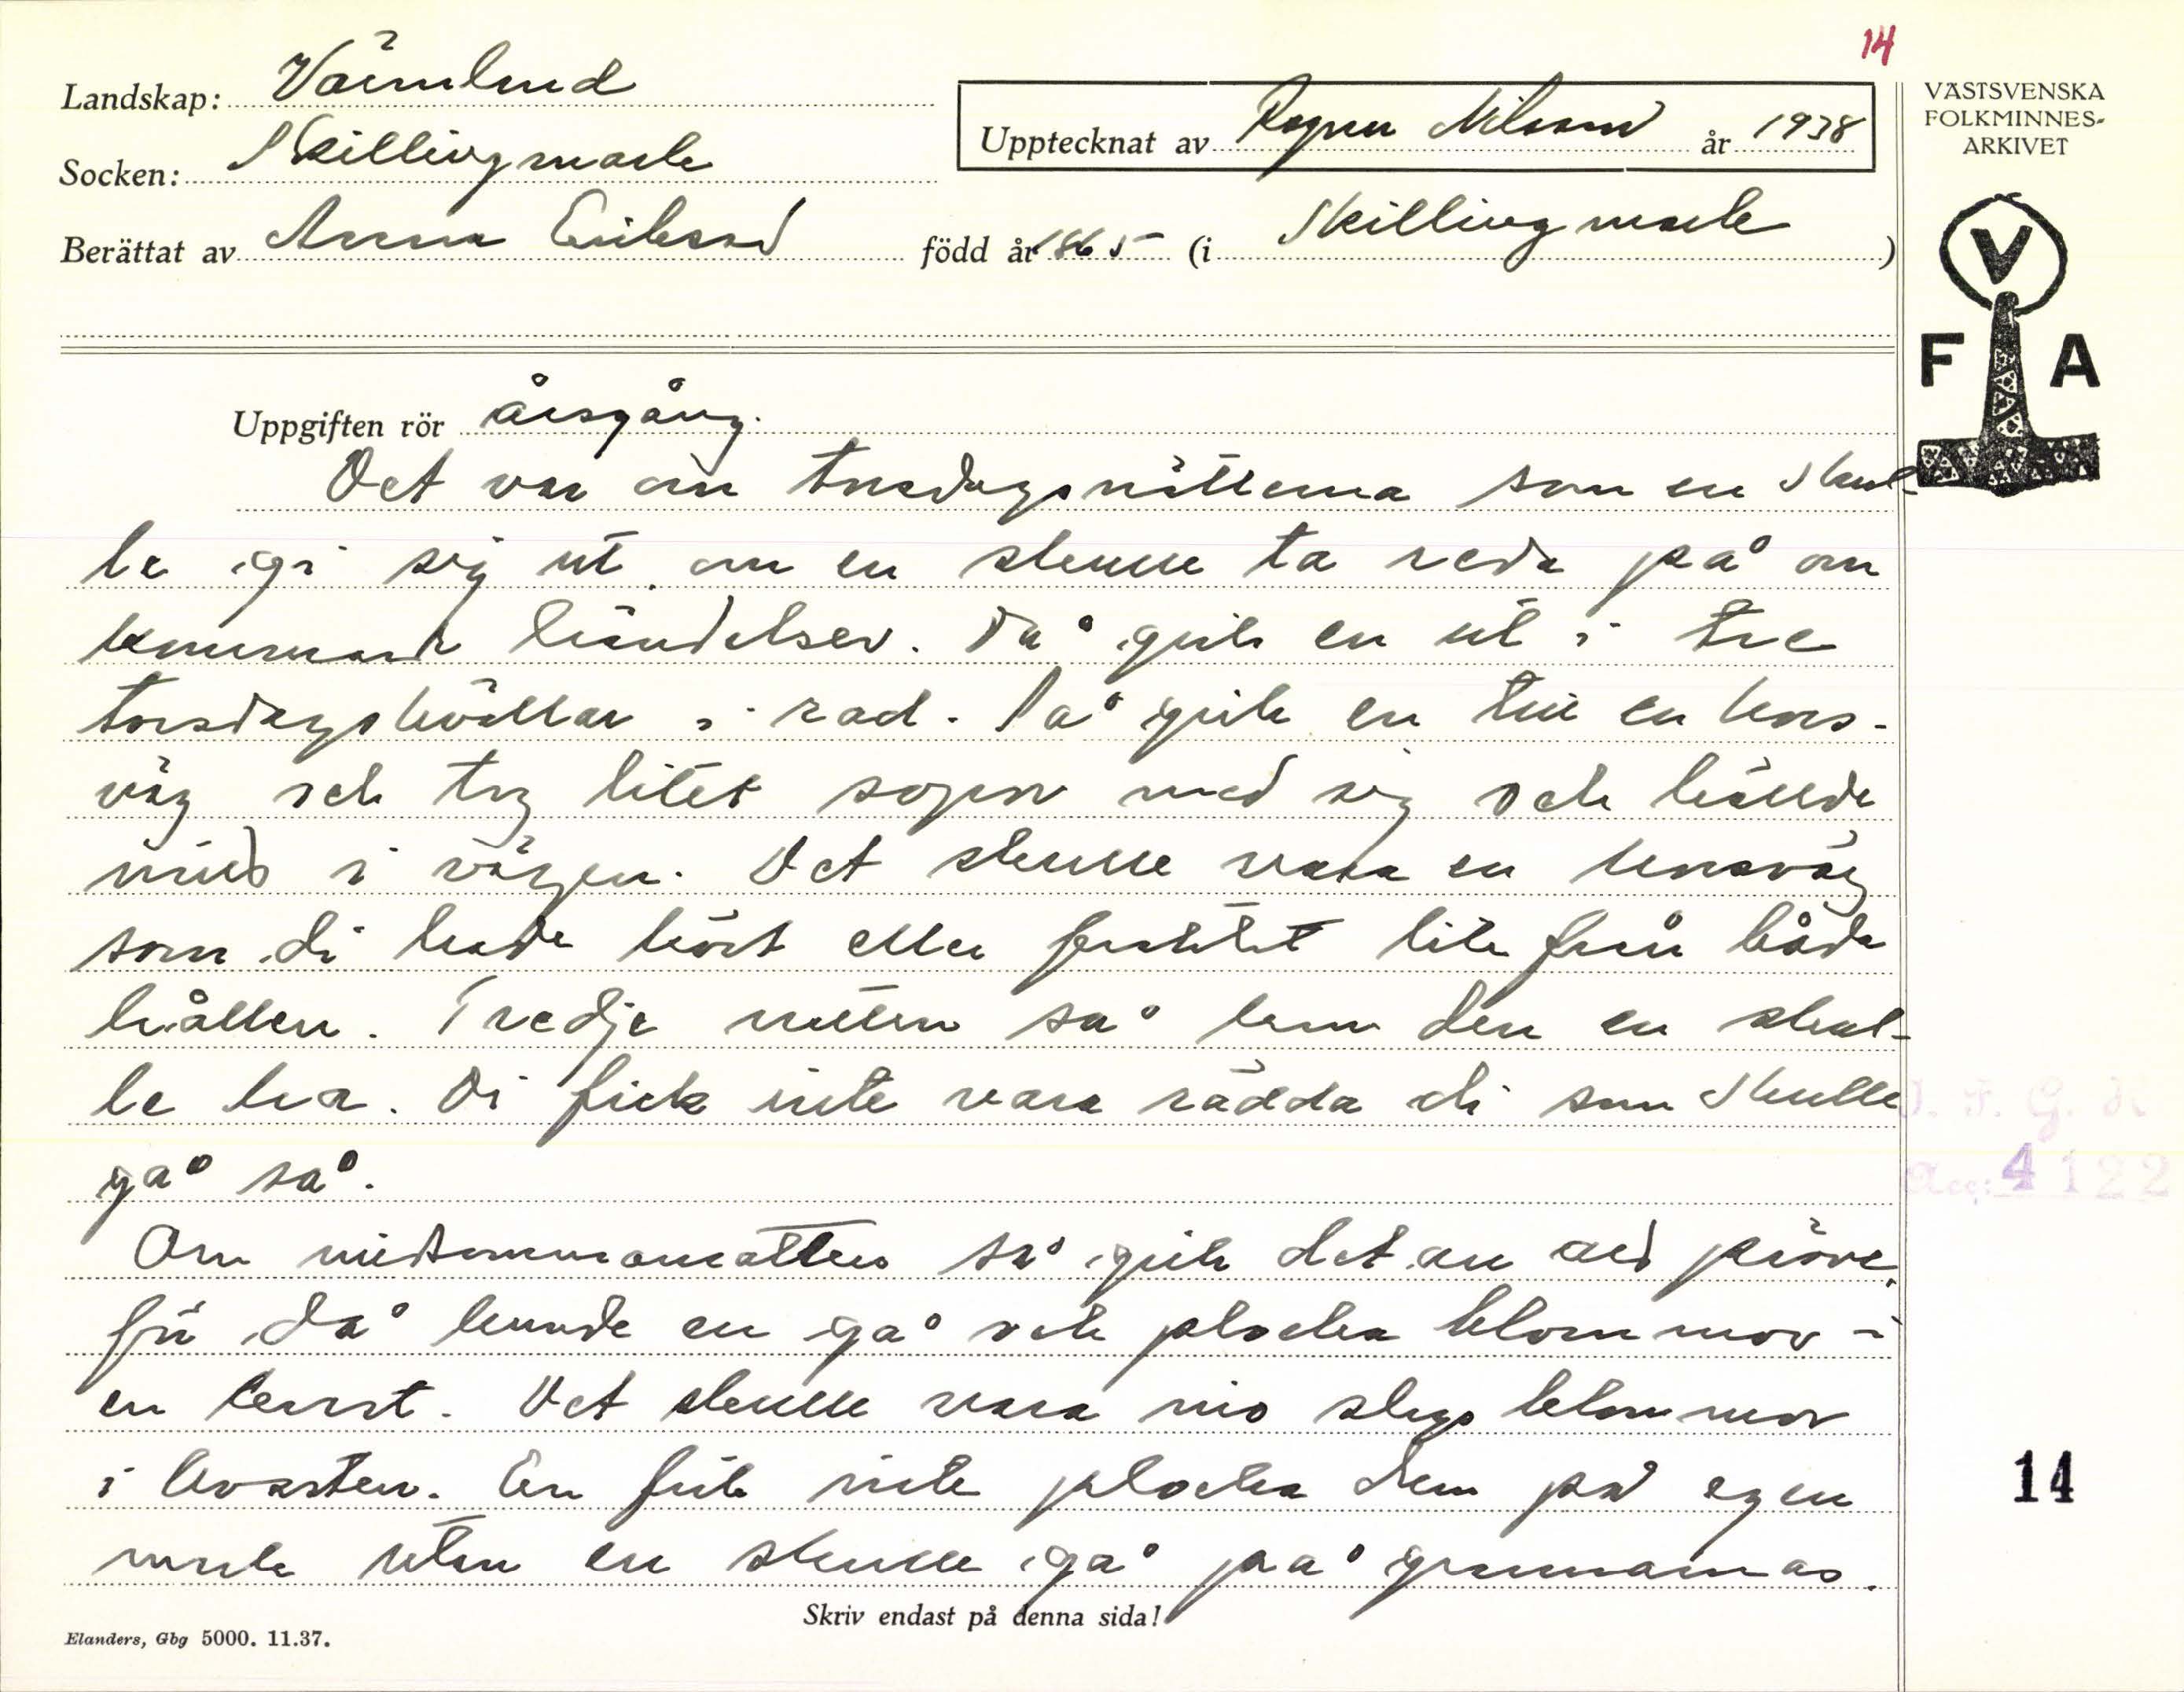 14
Landskap: Värmland
Socken: Skillingmark
Berättat av Anna Eriksson född år 1865 (i Skillingmark)
Upptecknat av Ragnar Nilsson år 1938
VÄSTSVENSKA
FOLKMINNES-
ARKIVET
V
F A
Uppgiften rör årsgång.
Det var om torsdagsnätterna som en skul-
le gi sig ut om en skulle ta reda på om
kommande händelser. Då gick en ut i tre
torsdagskvällar i rad. Så gick en till en kors-
väg och tog litet sopor med sig och hällde
med i vägen. Det skulle vara en korsväg
som di hade kört eller forslet lik från båda
hållen. Tredje natten så kom den en skul-
le ha. Di fick inte vara rädda di som skulle
gå så.
Om midsommarnatten så gick det an och pröve,
för då kunde en gå och plocka blommor i
en kvast. Det skulle vara nio slags blommor
i kvasten. En fick inte plocka dem på egen
mark utan en skulle gå på grannarnas.
Skriv endast på denna sida!
Elanders, Gbg 5000. 11.37.
I. F. G. H.
Acc: 4122
14